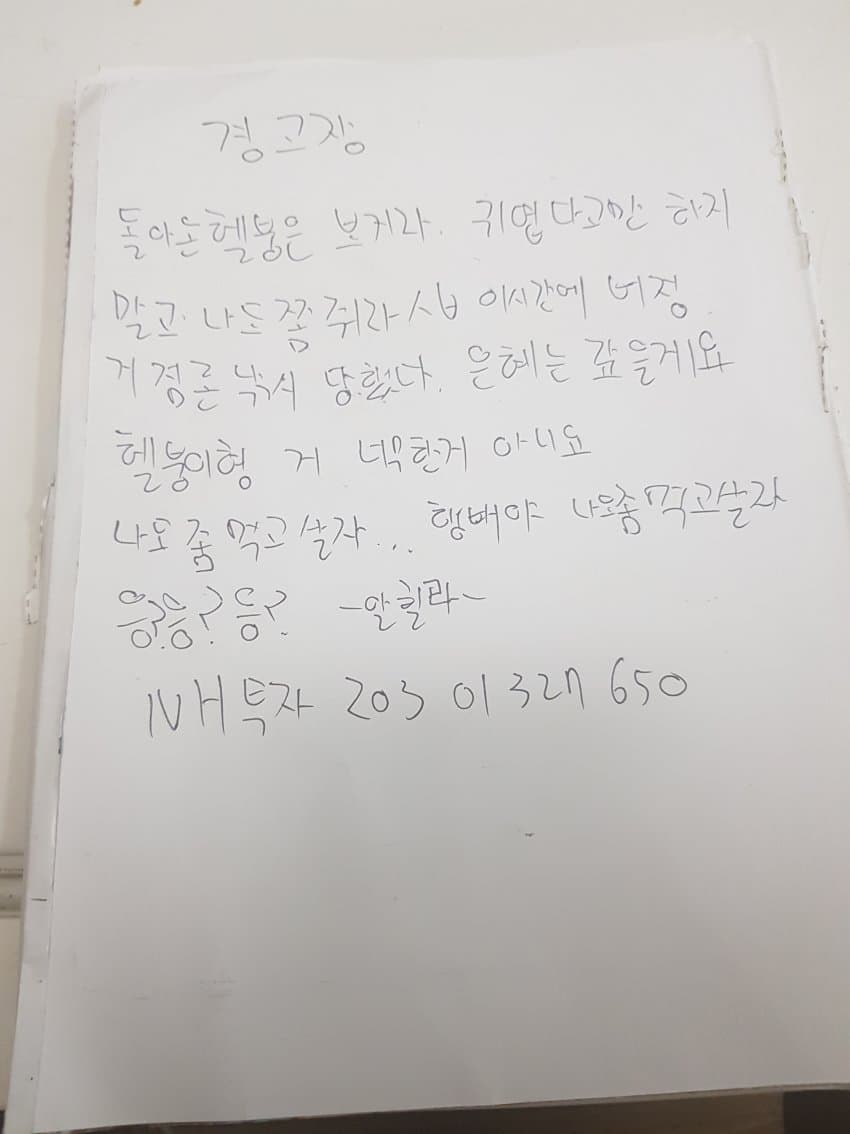 경고장
돌아온헬붕은 보거라. 귀엽다고만 하지
말고 나도쫌 줘라 시ㅂ 이시간에
낚시 당했다. 은혜는 갚을게요
헬붕이형 거 너무한거 아니요
나도 좀 먹고 살자... 행배야 나도좀 먹고살자
응?응?응? -알힐라-
NH투자 203 01 327 650